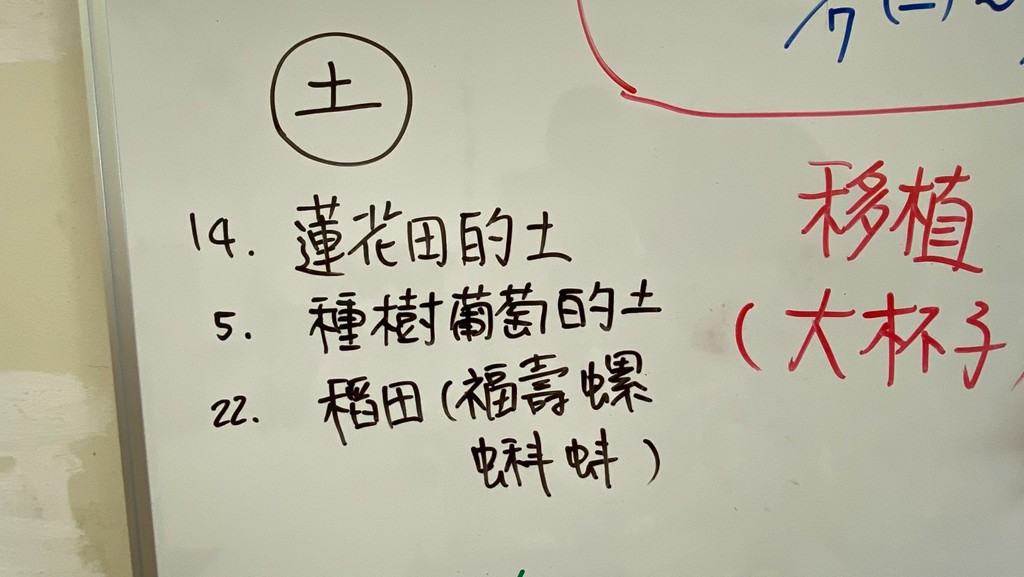 土
14. 蓮花田的土
5. 種樹葡萄的土
22. 稻田(福壽螺
蝌蚪)
移植
(大杯子)